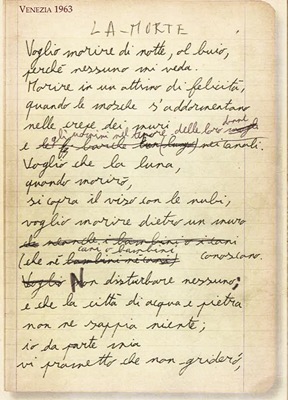 VENEZIA 1963
LA-MORTE
Voglio morire di notte, al buio,
perché nessuno mi veda.
Morire in un attimo di felicità,
quando le mosche s'addormentano
nelle crepe dei muri
e gli uomini nel tenore delle loro donne
nei canali.
Voglio che la luna,
quando morirò,
si copra il viso con le nubi,
voglio morire dietro un muro
cani o bambini
(che né bambini né cani) conoscano.
Voglio Non disturbare nessuno;
e che la città di acqua e pietra
non ne sappia niente;
io da parte mia
vi prometto che non griderò,